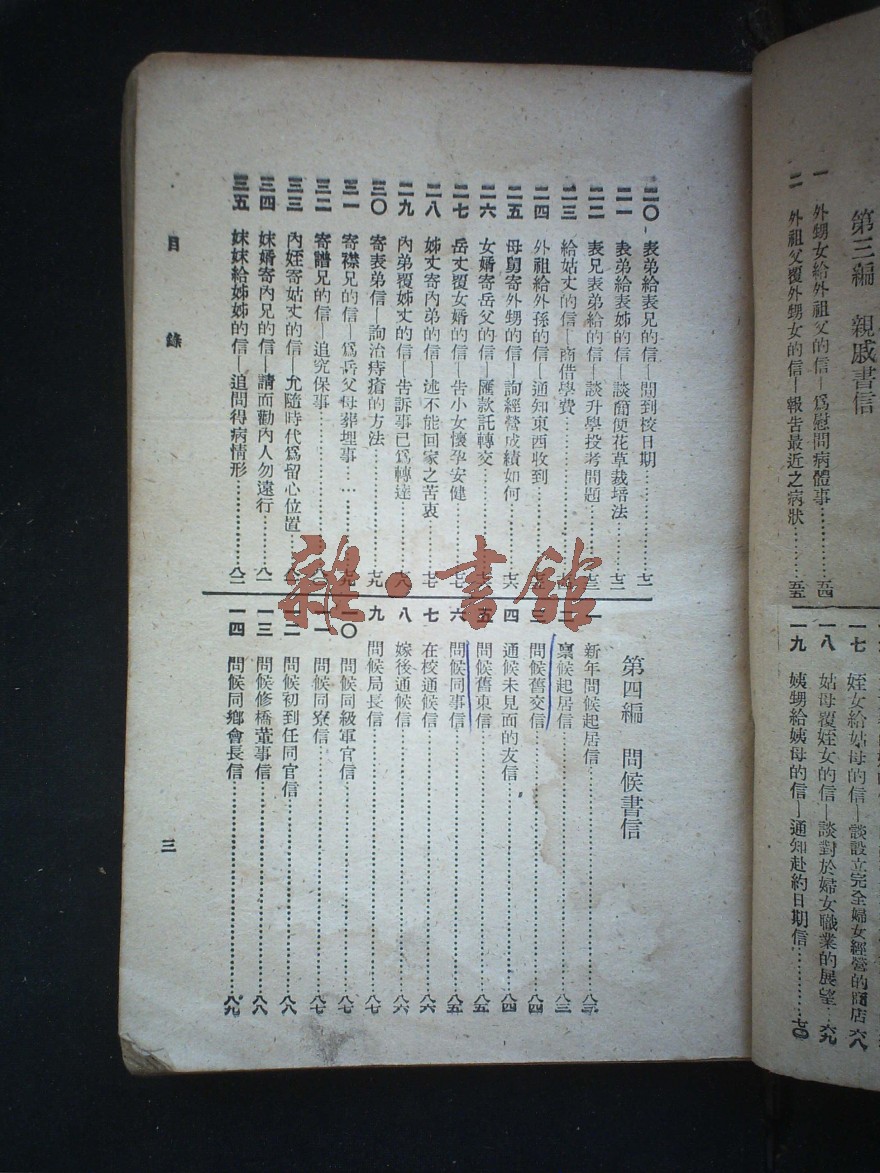 第三編　親戚書信
一　外甥女給外祖父的信—爲慰問病體事…………五四
二　外祖父覆外甥女的信—報告最近之病狀…………五五
一七　姪女給姑母的信—談設立完全婦女經營的商店…六八
一八　姑母覆姪女的信—談對於婦女職業的展望…六九
一九　姨甥給姨母的信—通知赴約日期信…………七〇
二〇　表弟給表兄的信—問到校日期…………七二
二一　表弟給表姊的信—談簡便花草栽培法…………七二
二二　表兄表弟給的信—談升學投考問題…………七三
二三　給姑丈的信—商借學費…………
二四　外祖給外孫的信—通知東西收到…………
二五　母舅寄外甥的信—詢經營成績如何…………七六
二六　女婿寄岳父的信—匯款託轉交…………
二七　岳丈覆女婿的信—告小女懷孕安健…………七七
二八　姊丈寄內弟的信—述不能回家之苦衷…………七七
二九　內弟覆姊丈的信—告訴事已爲轉達…………七八
三〇　寄表弟信—詢治痔瘡的方法…………七九
三一　寄襟兄的信—爲岳父母葬埋事…………七九
三二　寄譜兄的信—追究保事…………
三三　內姪寄姑丈的信—允隨時代爲留心位置
三四　妹婿寄內兄的信—請面勸內人勿遠行…………八一
三五　妹妹給姊姊的信—追問得病情形…………八二
第四編　問候書信
一　新年問候起居信…………八三
二　稟候起居信…………八三
三　問候舊交信…………八四
四　通候未見面的友信…………八四
五　問候舊東信…………八五
六　問候同事信…………八五
七　在校通候信…………八六
八　嫁後通候信…………八六
九　問候局長信…………八七
一〇　問候同級軍官信…………八七
一一　問候同寮信…………八七
一二　問候初到任同官信…………八八
一三　問候修橋董事信…………八八
一四　問候同鄉會長信…………八九
目錄
三
雜·書館